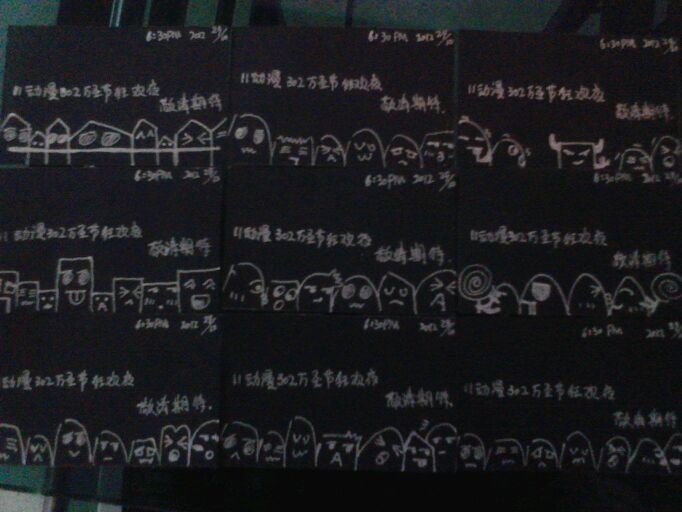 6:30PM 2012 29/10
11动漫302万圣节狂欢夜
敬请期待
6:30PM 2012 29/10
11动漫302万圣节狂欢夜
敬请期待.
6:30PM 2012 29/10
11动漫302万圣节狂欢夜
敬请期待.
6:30PM 2012 29/10
11动漫302万圣节狂欢夜
敬请期待.
6:30PM 2012 29/10
11动漫302万圣节狂欢夜
敬请期待.
6:30PM 2012 29/10
11动漫302万圣节狂欢夜
敬请期待.
6:30PM 2012 29/10
11动漫302万圣节狂欢夜
敬请期待.
6:30PM 2012 29/10
11动漫302万圣节狂欢夜
敬请期待.
6:30PM 2012
11动漫302万圣节狂欢夜
敬请期待